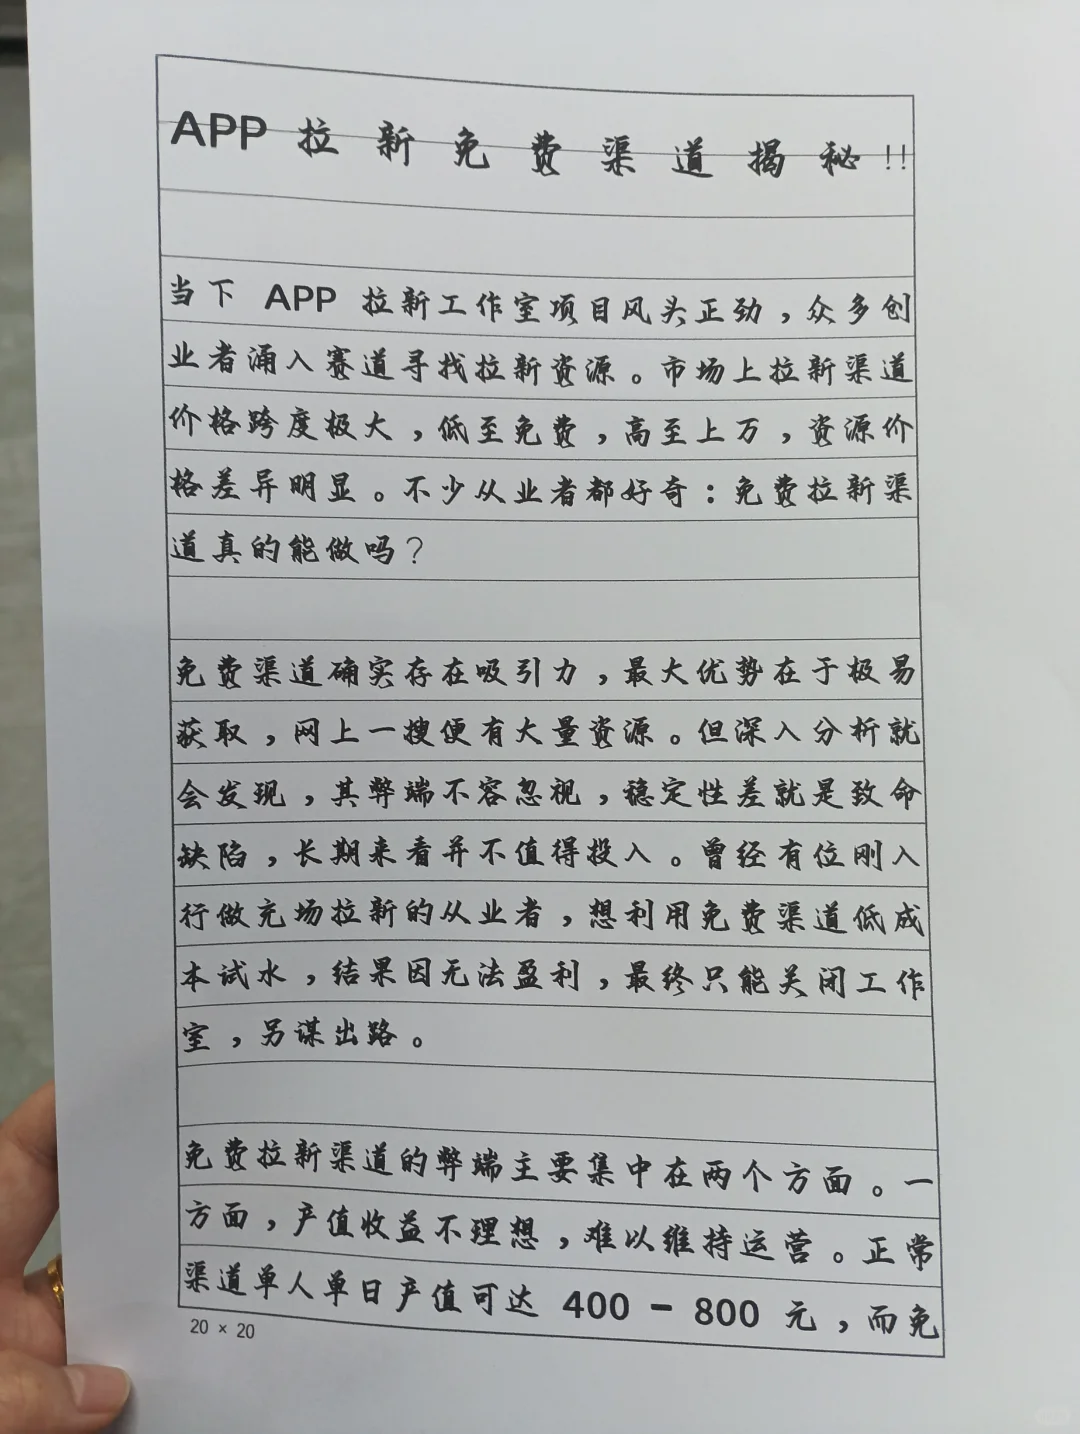 APP 拉新免费渠道揭秘!!
当下 APP 拉新工作室项目风头正劲，众多创
业者涌入赛道寻找拉新资源。市场上拉新渠道
价格跨度极大，低至免费，高至上万，资源价
格差异明显。不少从业者都好奇：免费拉新渠
道真的能做吗？
免费渠道确实存在吸引力，最大优势在于极易
获取，网上一搜便有大量资源。但深入分析就
会发现，其弊端不容忽视，稳定性差就是致命
缺陷，长期来看并不值得投入。曾经有位刚入
行做充场拉新的从业者，想利用免费渠道低成
本试水，结果因无法盈利，最终只能关闭工作
室，另谋出路。
免费拉新渠道的弊端主要集中在两个方面。一
方面，产值收益不理想，难以维持运营。正常
渠道单人单日产值可达 400 - 800 元，而免
20 × 20